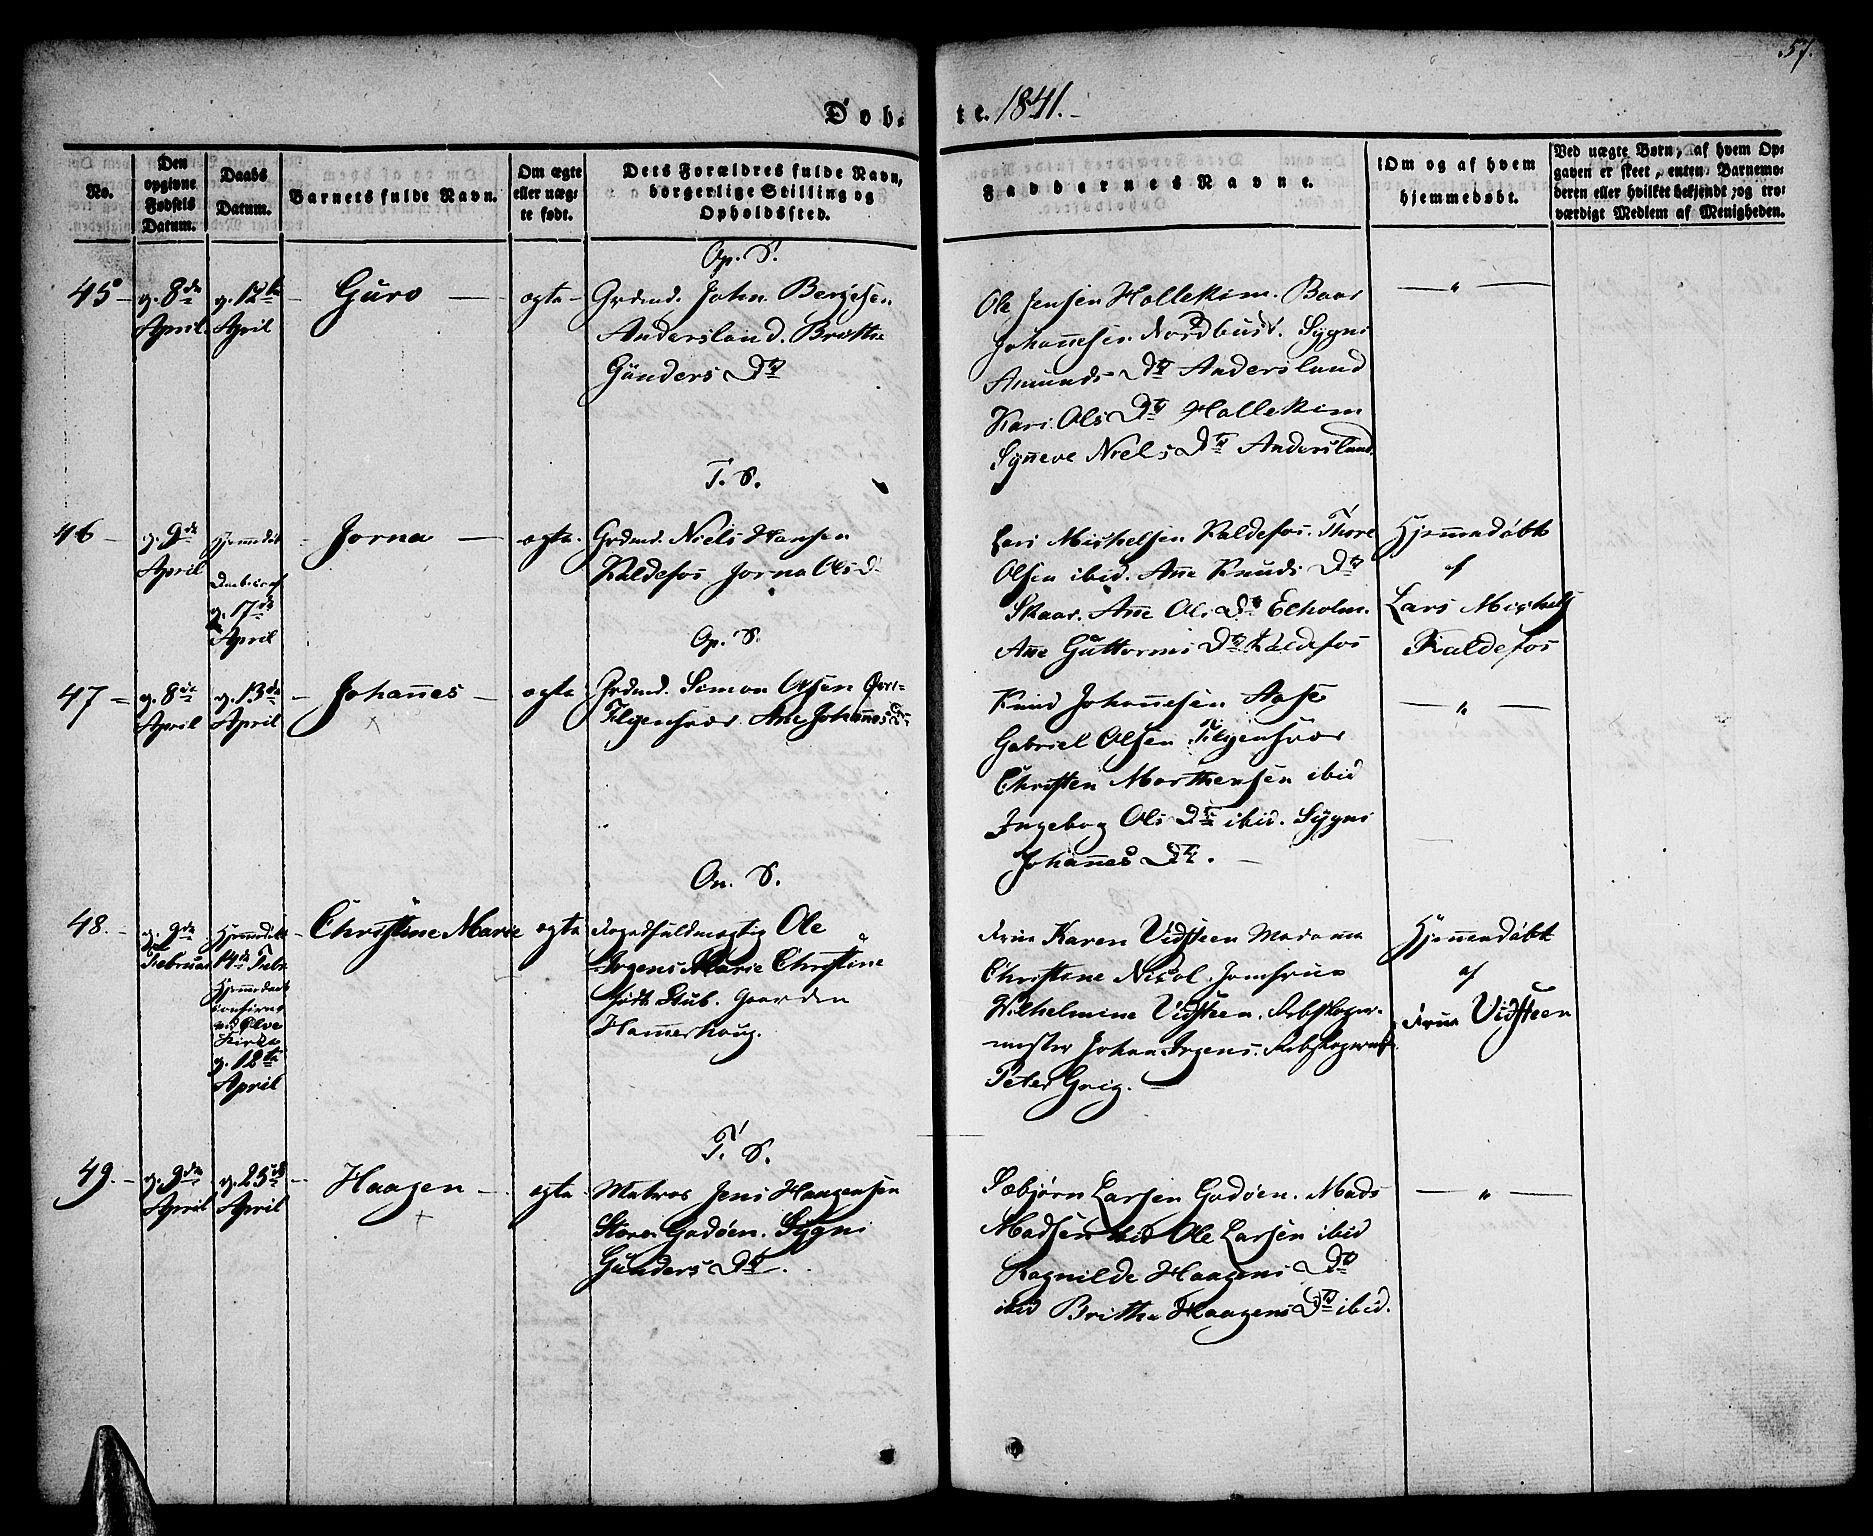 57.
Døb-te. 1841.
No.
Den opgivne Fødsels Datum.
Daabs Datum.
Barnets fulde Navn.
Om ægte eller uægte født.
Dets Forældres fulde Navn, borgerlige Stilling og Opholdssted.
Faddernes Navne.
Om og af hvem hjemmedøbt.
Ved uægte Børn, af hvem Opgaven er skeet, enten Barnemoderen eller hvilket bekjendt og troværdigt Medlem af Menigheden.
Op. S.
45 d. 8de April
d. 12te April
Guro
ægte
Grdmd. John Berjesen
Andersland. Brithe
Gunders Dtr
Ole Jensen Hollekim. Baar
Johannesen Nordhuus. Sygni
Amunds Dtr Andersland
Kari Ols Dtr Hollekim
Synneve Niels Dtr Andersland
T. S.
46 d. 9de April
Hjemmedøbt
d. 17de April
Jorna
ægte
Grdmd. Niels Hansen
Kaldefos Jorna Ols D.
Lars Michelsen Kaldefos. Thore
Olsen ibid. Anne Knuds Dtr
Skaar. Anne Ols Dtr Echolm.
Anne Guttorms Dtr Kaldefos
Hjemmedøbt
af
Lars Michels
Kaldefos
Op. S.
47 d. 8de April
d. 13de April
Johannes
ægte
Grdmd. Simon Olsen
Ane Johannes Dtr
Knud Johannesen Aase
Gabriel Olsen
Christen Morthensen ibid
Ingebor Ols Dtr ibid. Sygni
Johannes Dtr.
On. S.
48. d. 9de Februar
Hjemmedøbt
14de Febr
Hjemmedaab
confirmt
ved Ølve
Kirke
d. 12te
April
Christine Marie
ægte
Fogedfuldmægtig Ole
Irgens Marie Christine
født Stub. Gaarden
Hammerhoug.
Frue Karen Vidsteen Madame
Christine Nicol. Jomfrue
Wilhelmine Vidsteen. Rebslager-
mester Johan Irgens. Rebslagermst.
Peter Grig.
Hjemmedøbt
af
Frue Vidsteen
T. S.
49. d. 9de April
d. 25de April
Haagen
ægte
Matros Jens Haagensen
Store Godøen. Sygni
Gunders Dtr.
Sæbjørn Larsen Godøen. Mads
Madsen ibid Ole Larsen ibid
Ragnilde Haagens Dtr
ibid Brithe Haagens Dtr ibid.